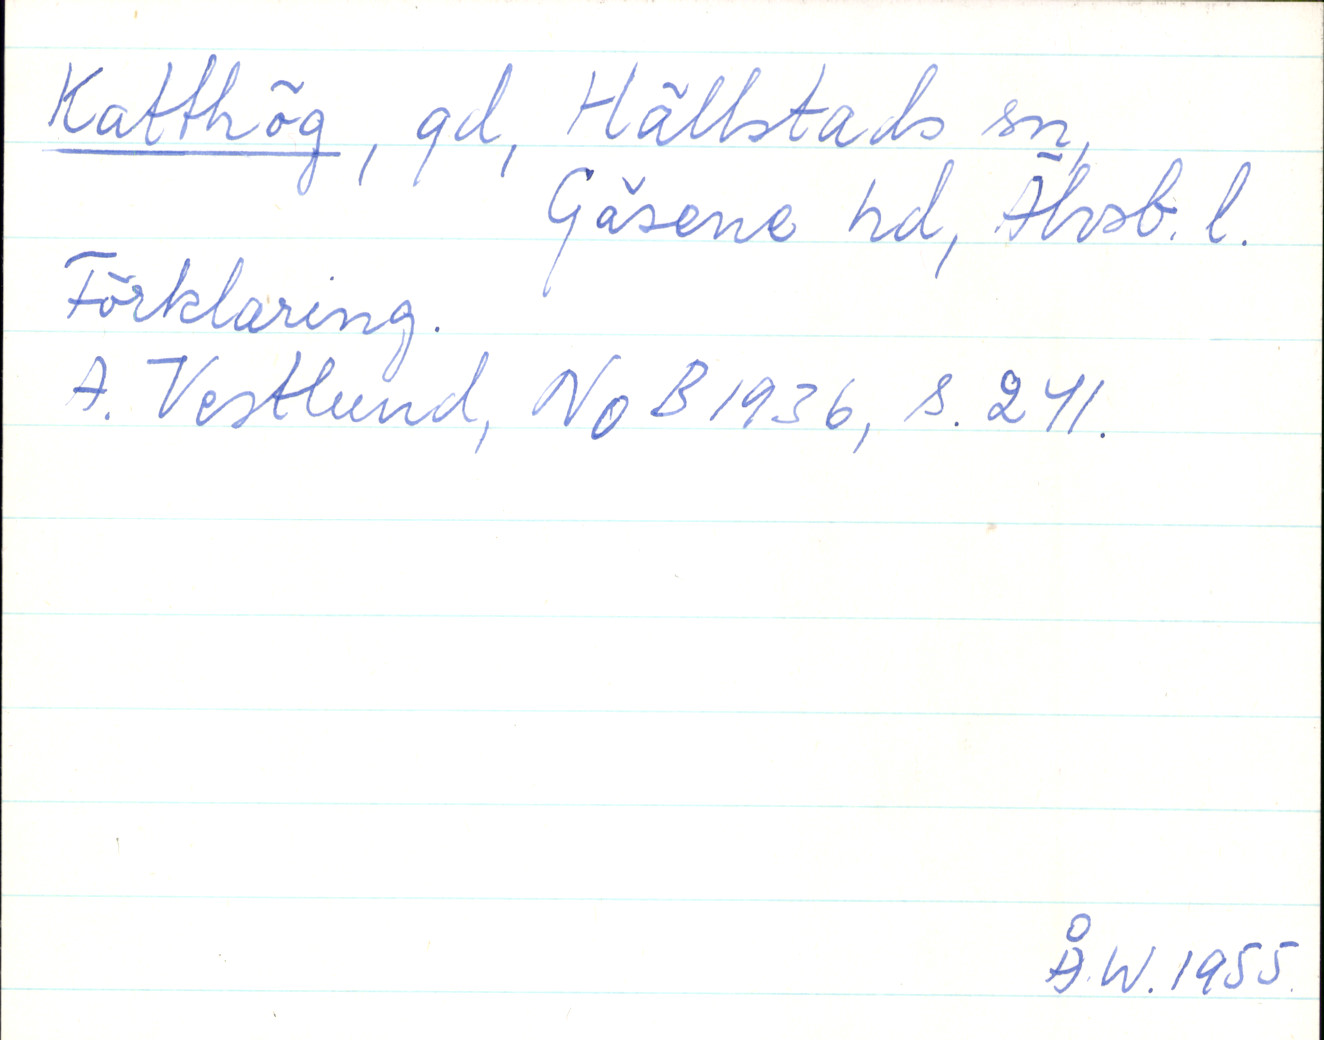 Katthög, gd, Hällstads sn,
Gäsene hd, Älvsb. l.
Förklaring.
A. Vestlund, NoB 1936, s. 241.
Å.W. 1955.